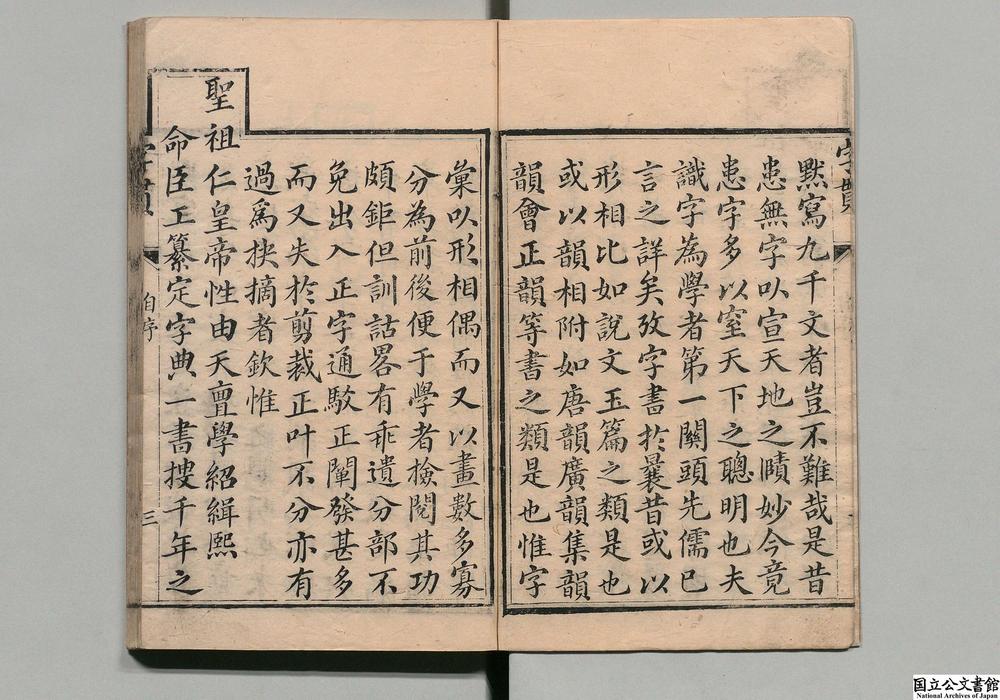 默寫九千文者豈不難哉是昔
患無字㕥宣天地之賾妙今竟
患字多以窒天下之聰明也夫
識字為學者第一關頭先儒已
言之詳矣攷字書扵曩昔或以
形相比如說文玉篇之類是也
或以韻相附如唐韻廣韻集韻
韻會正韻等書之類是也惟字
彙㕥形相偶而又以畫數多寡
分為前後便于學者撿閱其功
頗鉅但訓詁畧有乖遺分部不
免出入正字通駁正闡發甚多
而又失扵剪裁正叶不分亦有
過爲抉摘者欽惟
聖祖仁皇帝性由天亶學紹緝熙
命臣工纂定字典一書搜千年之
字貫
自序
三
字貫
国立公文書館
National Archives of Japan